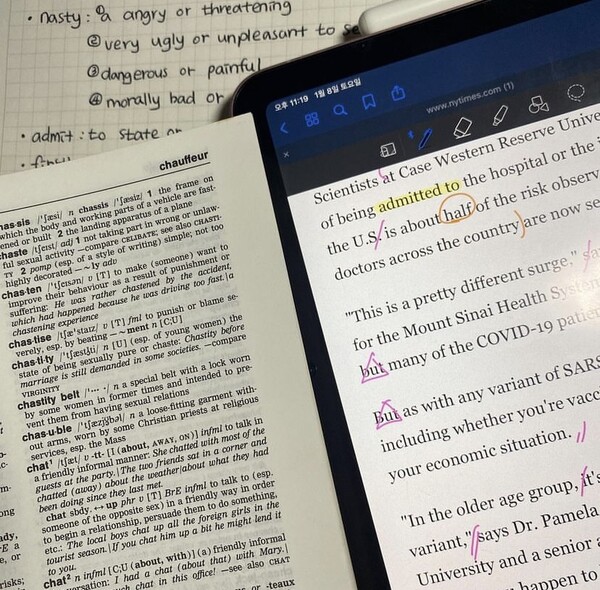 • nasty : ① a angry or threatening
② very ugly or unpleasant to se
③ dangerous or painful
④ morally bad or
• admit : to state or
chauffeur
chas·sis /ˈʃæsi/ n chassis /ˈʃæsiz/ 1 the frame on
which the body and working parts of a vehicle are fast-
ened or built 2 the landing apparatus of a plane
chaste /tʃeɪst/ adj 1 not taking part in wrong or unlaw-
ful sexual activity —compare CELIBATE; see also CHASTI-
TY 2 pomp (esp. of a style of writing) simple; not too
highly decorated — ~ly adv
chas·ten /ˈtʃeɪsən/ v [T] to make (someone) want to
improve their behaviour as a result of punishment or
suffering: He was rather chastened by the accident,
which had happened because he was driving too fast.|a
chastening experience
chas·tise /tʃæˈstaɪz/ v [T] fml to punish or blame se-
verely, esp. by beating — ~ment n [C;U]
chas·ti·ty /ˈtʃæstɪti/ n [U] (esp. of young women) the
state of being sexually pure or chaste: Chastity before
marriage is still demanded in some societies. —compare
VIRGINITY
chastity belt /ˈ··· ·/ n a special belt with a lock worn
by some women in former times and intended to pre-
vent them from having sexual relations
chas·u·ble /ˈtʃæzjʊbəl/ n a loose-fitting garment with-
out arms, worn by some Christian priests at religious
services, esp. the Mass
chat¹ /tʃæt/ v -tt- [I (about, AWAY, ON)] infml to talk in
a friendly informal manner: She chatted with most of the
guests at the party.|The two friends sat in a corner and
chatted (away) about the weather|about what they had
been doing since they last met.
chat sbdy. ↔ up phr v [T] BrE infml to talk to (esp.
someone of the opposite sex) in a friendly way in order
to begin a relationship, persuade them to do something,
etc.: The local boys chat up all the foreign girls in the
tourist season.|If you chat him up a bit he might lend it
to you.
chat² n infml [C;U (about, with)] (a) friendly informal
I had a chat (about that) with Mary.|
chat in this office! —see also CHAT
or -teaux
오후 11:19 1월 8일 토요일
www.nytimes.com (1)
Scientists at Case Western Reserve Unive
of being admitted to the hospital or the i
the U.S. is about half of the risk observ
doctors across the country are now se
"This is a pretty different surge,"
for the Mount Sinai Health System
but many of the COVID-19 patie
But as with any variant of SARS
including whether you're vacc
your economic situation.
"In the older age group, it's
variant," says Dr. Pamela
University and a senior a
happen to